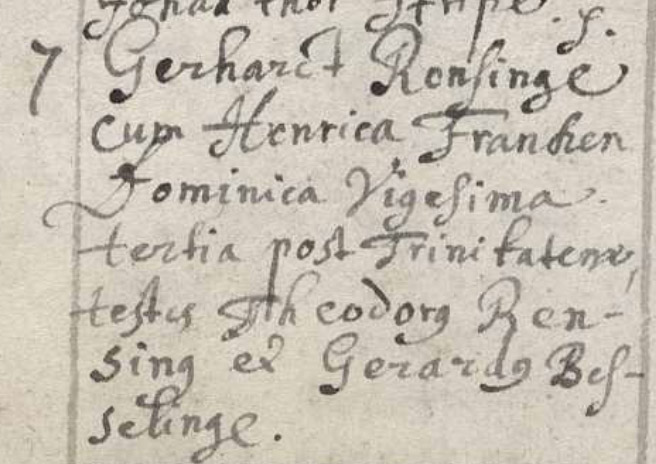 thor
7 Gerhardt Ronsinge
cum Henrica Francken
Dominica Vigesima
tertia post Trinitatem,
testes Theodorg Ren-
sing et Gerardg Bes-
selinge.